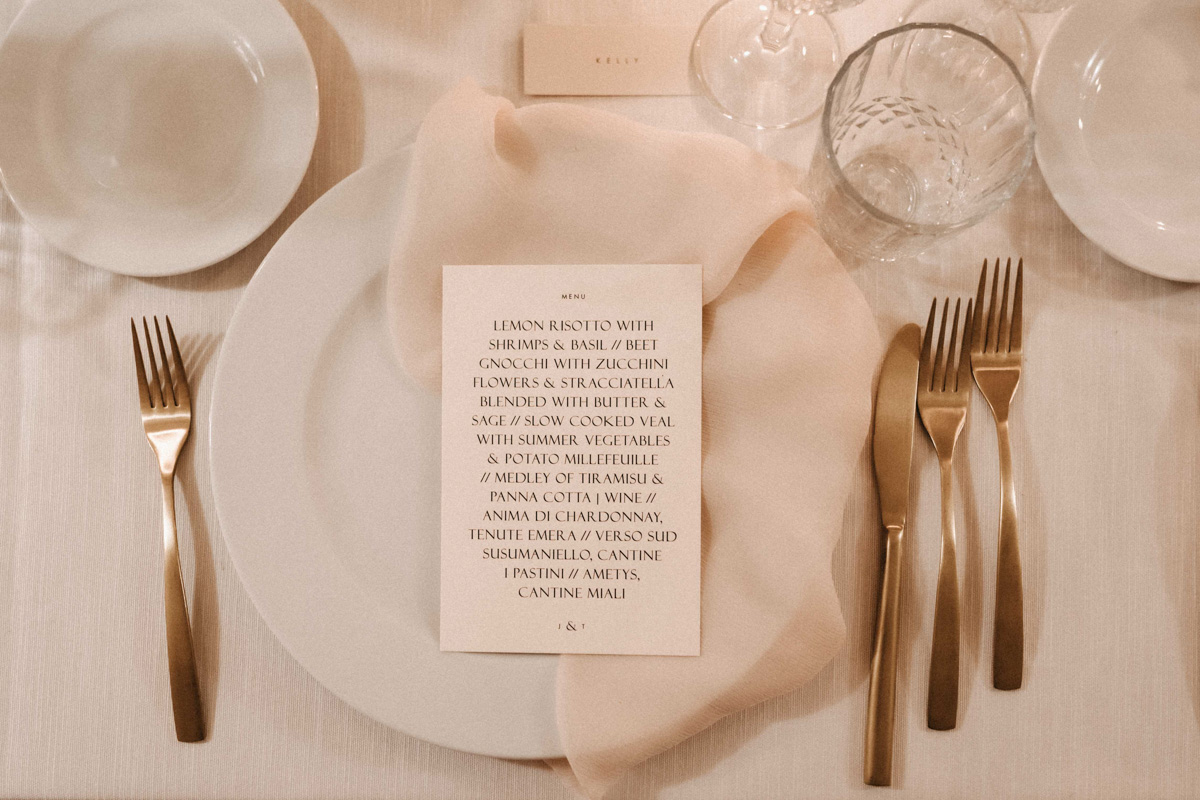 KELLY
MENU
LEMON RISOTTO WITH
SHRIMPS & BASIL // BEET
GNOCCHI WITH ZUCCHINI
FLOWERS & STRACCIATELLA
BLENDED WITH BUTTER &
SAGE // SLOW COOKED VEAL
WITH SUMMER VEGETABLES
& POTATO MILLEFEUILLE
// MEDLEY OF TIRAMISU &
PANNA COTTA | WINE //
ANIMA DI CHARDONNAY,
TENUTE EMERA // VERSO SUD
SUSUMANIELLO, CANTINE
I PASTINI // AMETYS,
CANTINE MIALI
J & T